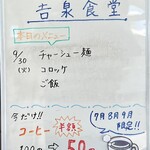 吉泉食堂
本日のメニュー
9/30 チャーシュー麺
(火) コロッケ
ご飯
今だけ!!
7月8月9月
限定!!
コーヒー
100円→50